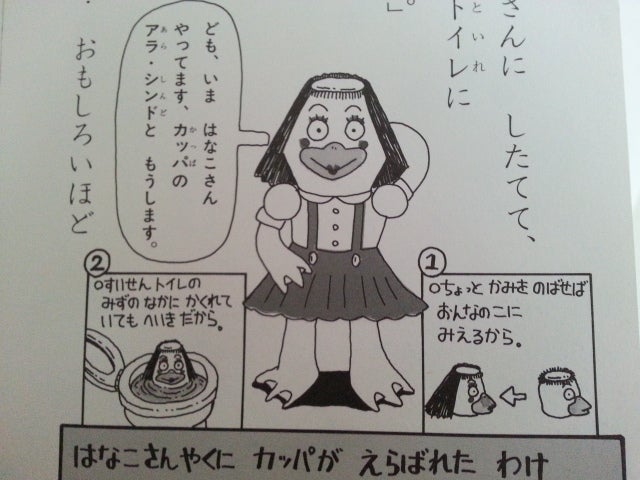 さんに したてて、
トイレに
といれ
。」
ども、いま はなこさん
やってます、カッパの
かっぱ
アラ・シンドと もうします。
あら しんど
おもしろいほど
①
○ちょっと かみを のばせば
おんなのこに
みえるから。
②
○すいせんトイレの
みずの なかに かくれて
いても へいきだから。
はなこさんやくに カッパが えらばれた わけ